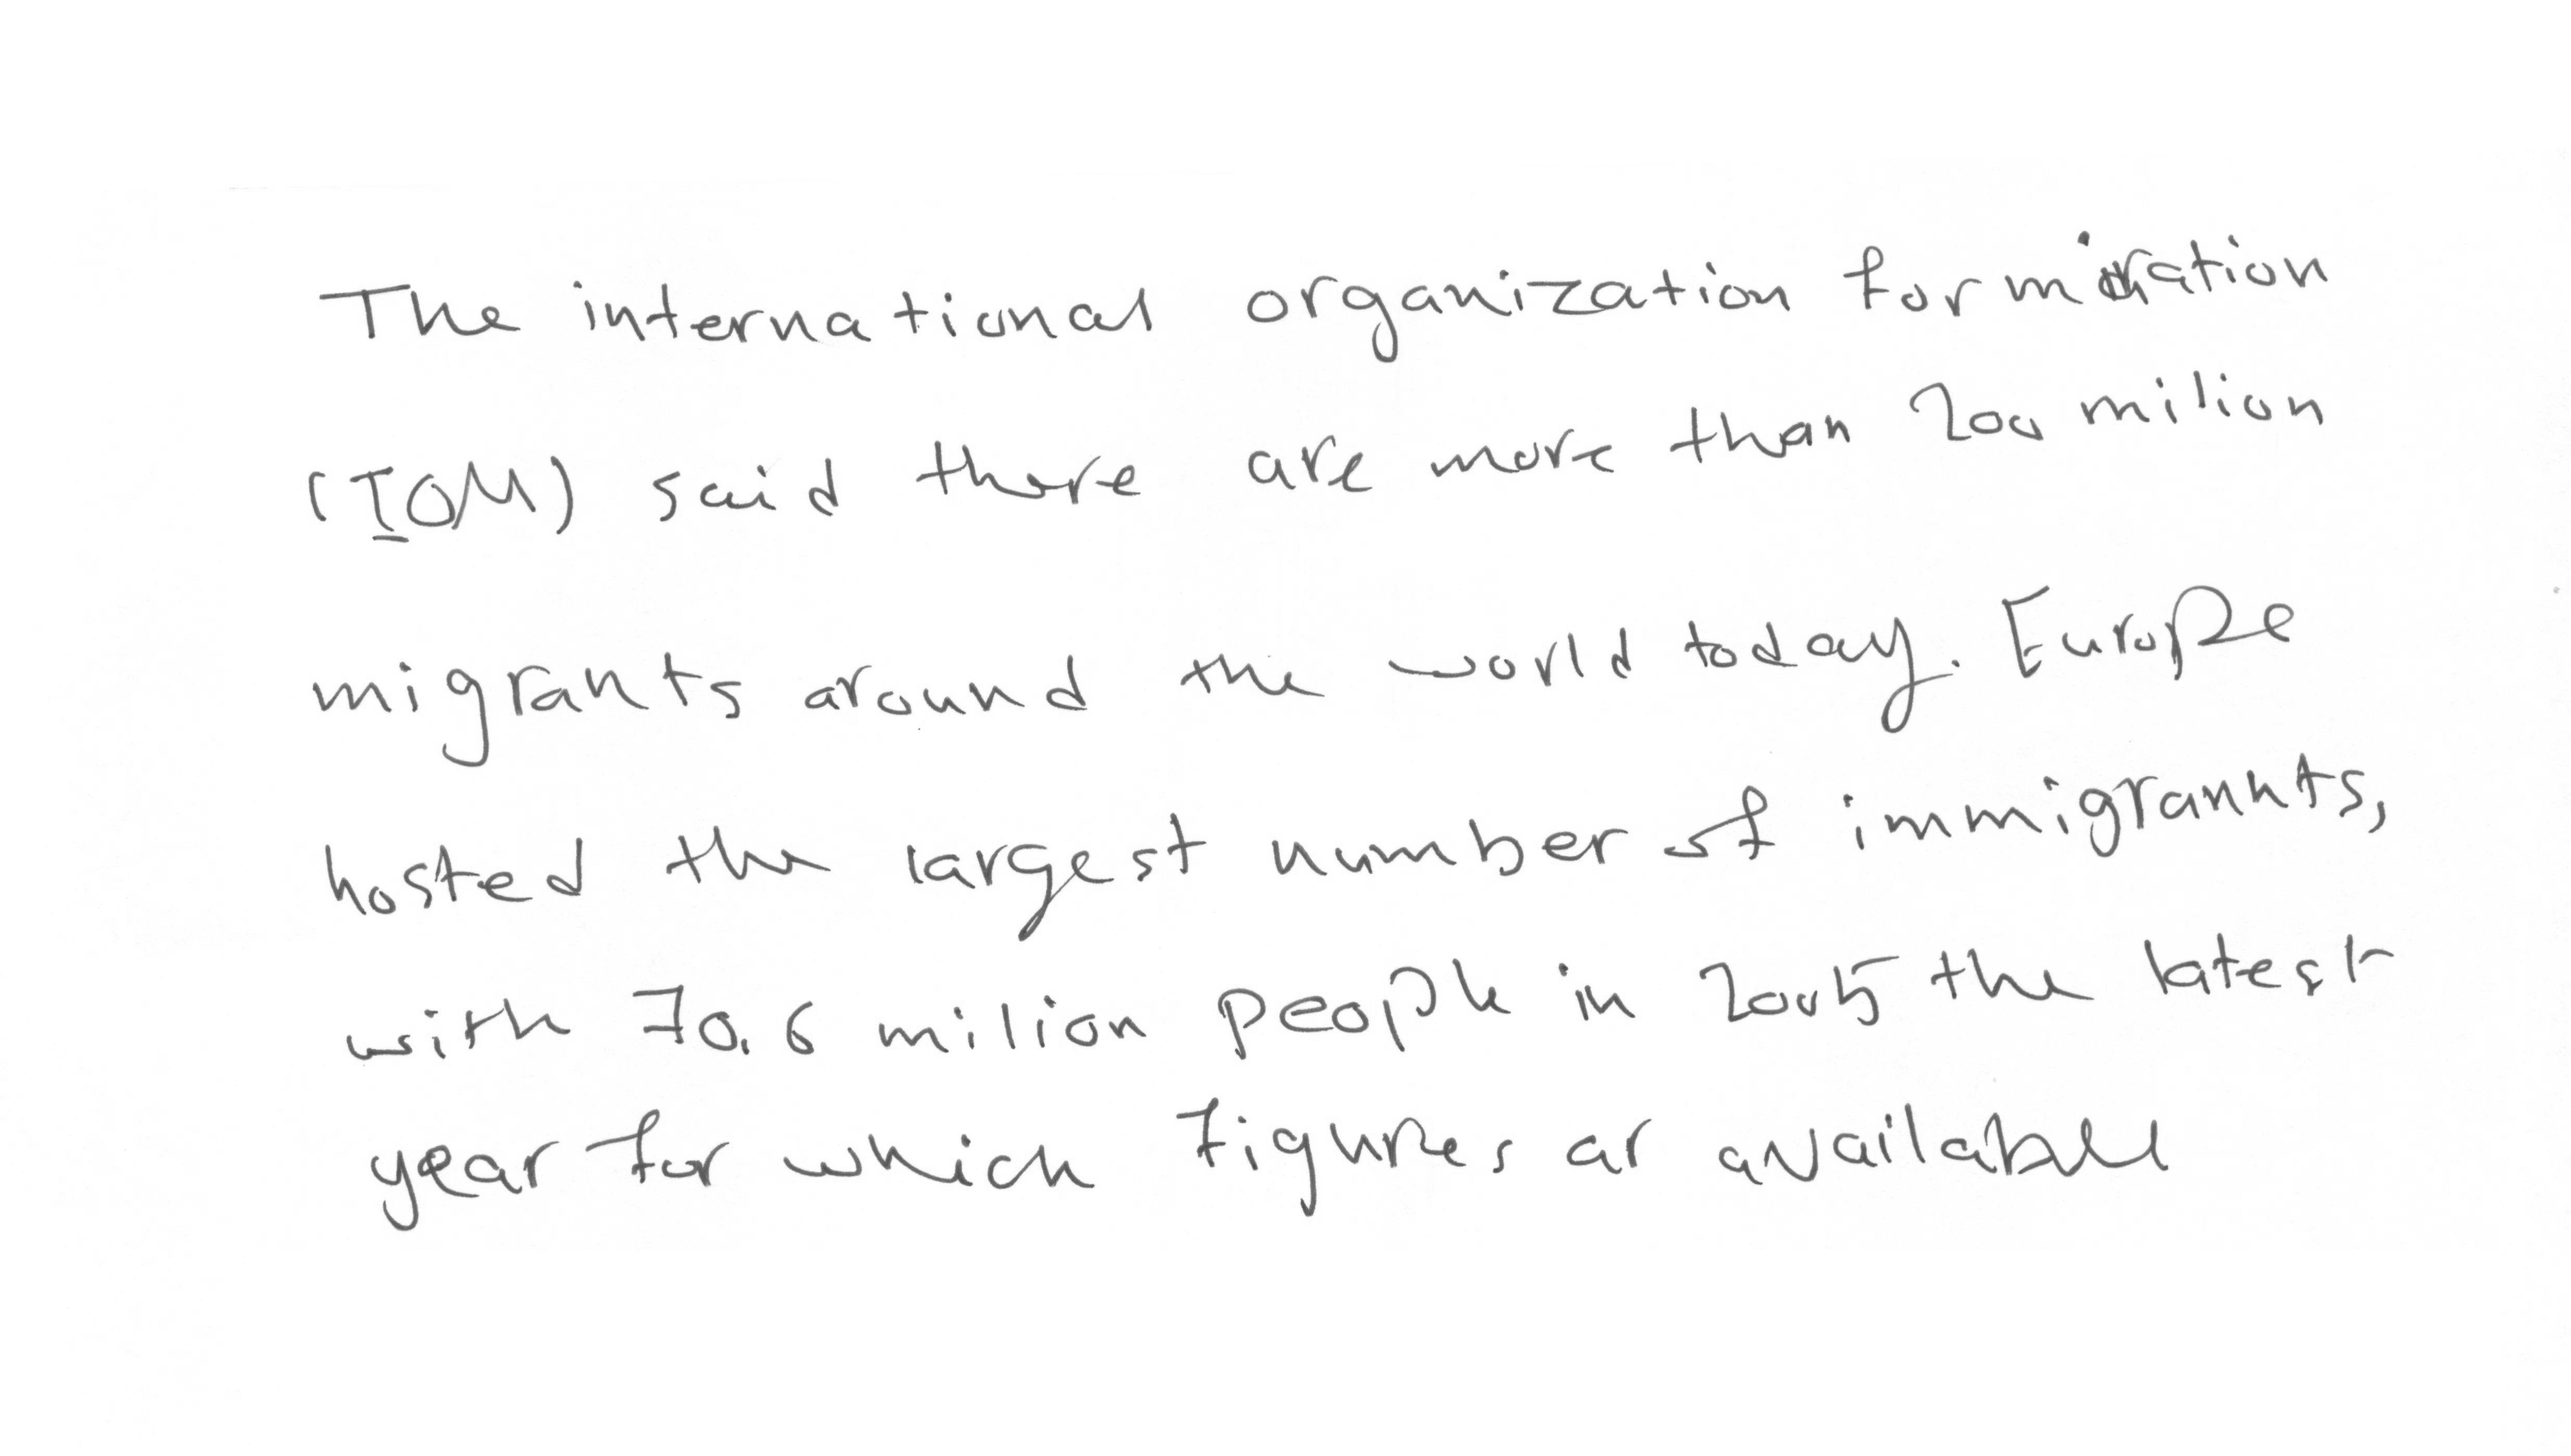 The international organization for miration
(IOM) said there are more than 200 milion
migrants around the world today. Europe
hosted the largest number of immigrannts,
with 70.6 milion people in 2005 the latest
year for which figures ar available